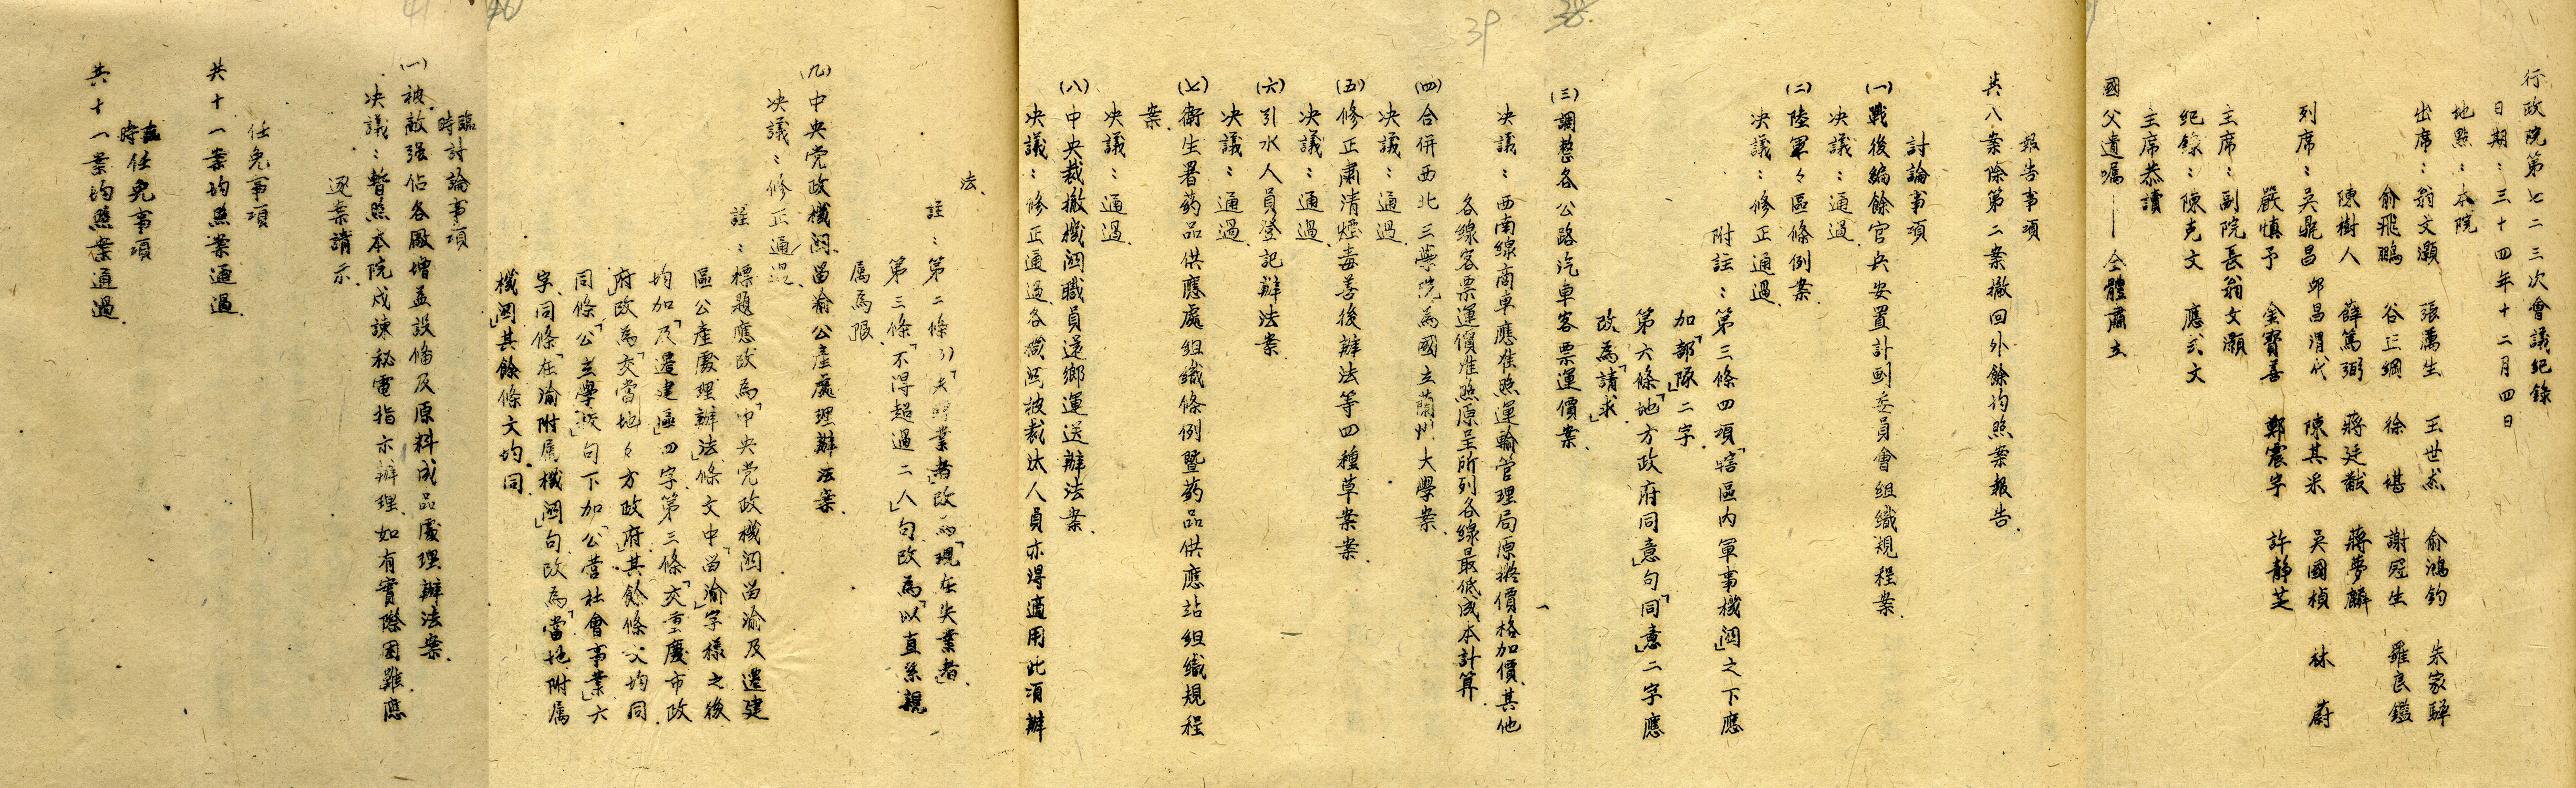 行政院第七二三次會議紀錄
日期：三十四年十二月四日
地點：本院
出席：翁文灝 張厲生 王世杰 俞鴻鈞 朱家驊
俞飛鵬 谷正綱 徐堪 謝冠生 羅良鑑
陳樹人 薛篤弼 蔣廷黻 蔣夢麟
列席：吳鼎昌 邱昌渭代 陳其采 吳國楨 林蔚
嚴慎予 金寶善 鄭震宇 許靜芝
主席：副院長翁文灝
紀錄：陳克文 應式文
主席恭讀
國父遺囑——全體肅立
報告事項
共八案除第二案撤回外餘均照案報告.
討論事項
(一)戰後編餘官兵安置計劃委員會組織規程案.
決議：通過.
(二)陸軍々區條例案.
決議：修正通過.
附註：第三條四項「轄區內軍事機關」之下應
加「部隊」二字.
第六條「地方政府同意」句「同意」二字應
改為「請求」.
(三)調整各公路汽車客票運價案.
決議：西南線商車應准照運輸管理局原擬價格加價.其他
各線客票運價准照原呈所列各線最低成本計算.
(四)合併西北三學院為國立蘭州大學案.
決議：通過.
(五)修正肅清煙毒善後辦法等四種草案案.
決議：通過.
(六)引水人員登記辦法案.
決議：通過.
(七)衛生署葯品供應處組織條例暨葯品供應站組織規程
案.
決議：通過.
(八)中央裁撤機關職員還鄉運送辦法案.
決議：修正通過各機關被裁汰人員亦得適用此項辦
法.
註：第二條(3)「失業者」改為「現在失業者」.
第三條「不得超過二人」句改為「以直系親
属為限.
(九)中央党政機關留渝公產處理辦法案.
決議：修正通過.
註：標題應改為「中央党政機關留渝及遷建
區公產處理辦法」條文中「留渝」字樣之後
均加「及遷建區」四字第三條「交重慶市政
府」改為「交當地々方政府」其餘條文均同.
同條「公立學校」句下加「公營社會事業」六
字.同條「在渝附属機關」句改為「當地附属
機關」其餘條文均同.
臨時討論事項
(一)被敵强佔各廠增益設備及原料成品處理辦法案.
決議：暫照本院戍諫秘電指示辦理.如有實際困難應
逐案請示.
任免事項
共十一案均照案通過.
臨時任免事項
共十一案均照案通過.
39
38
40
41